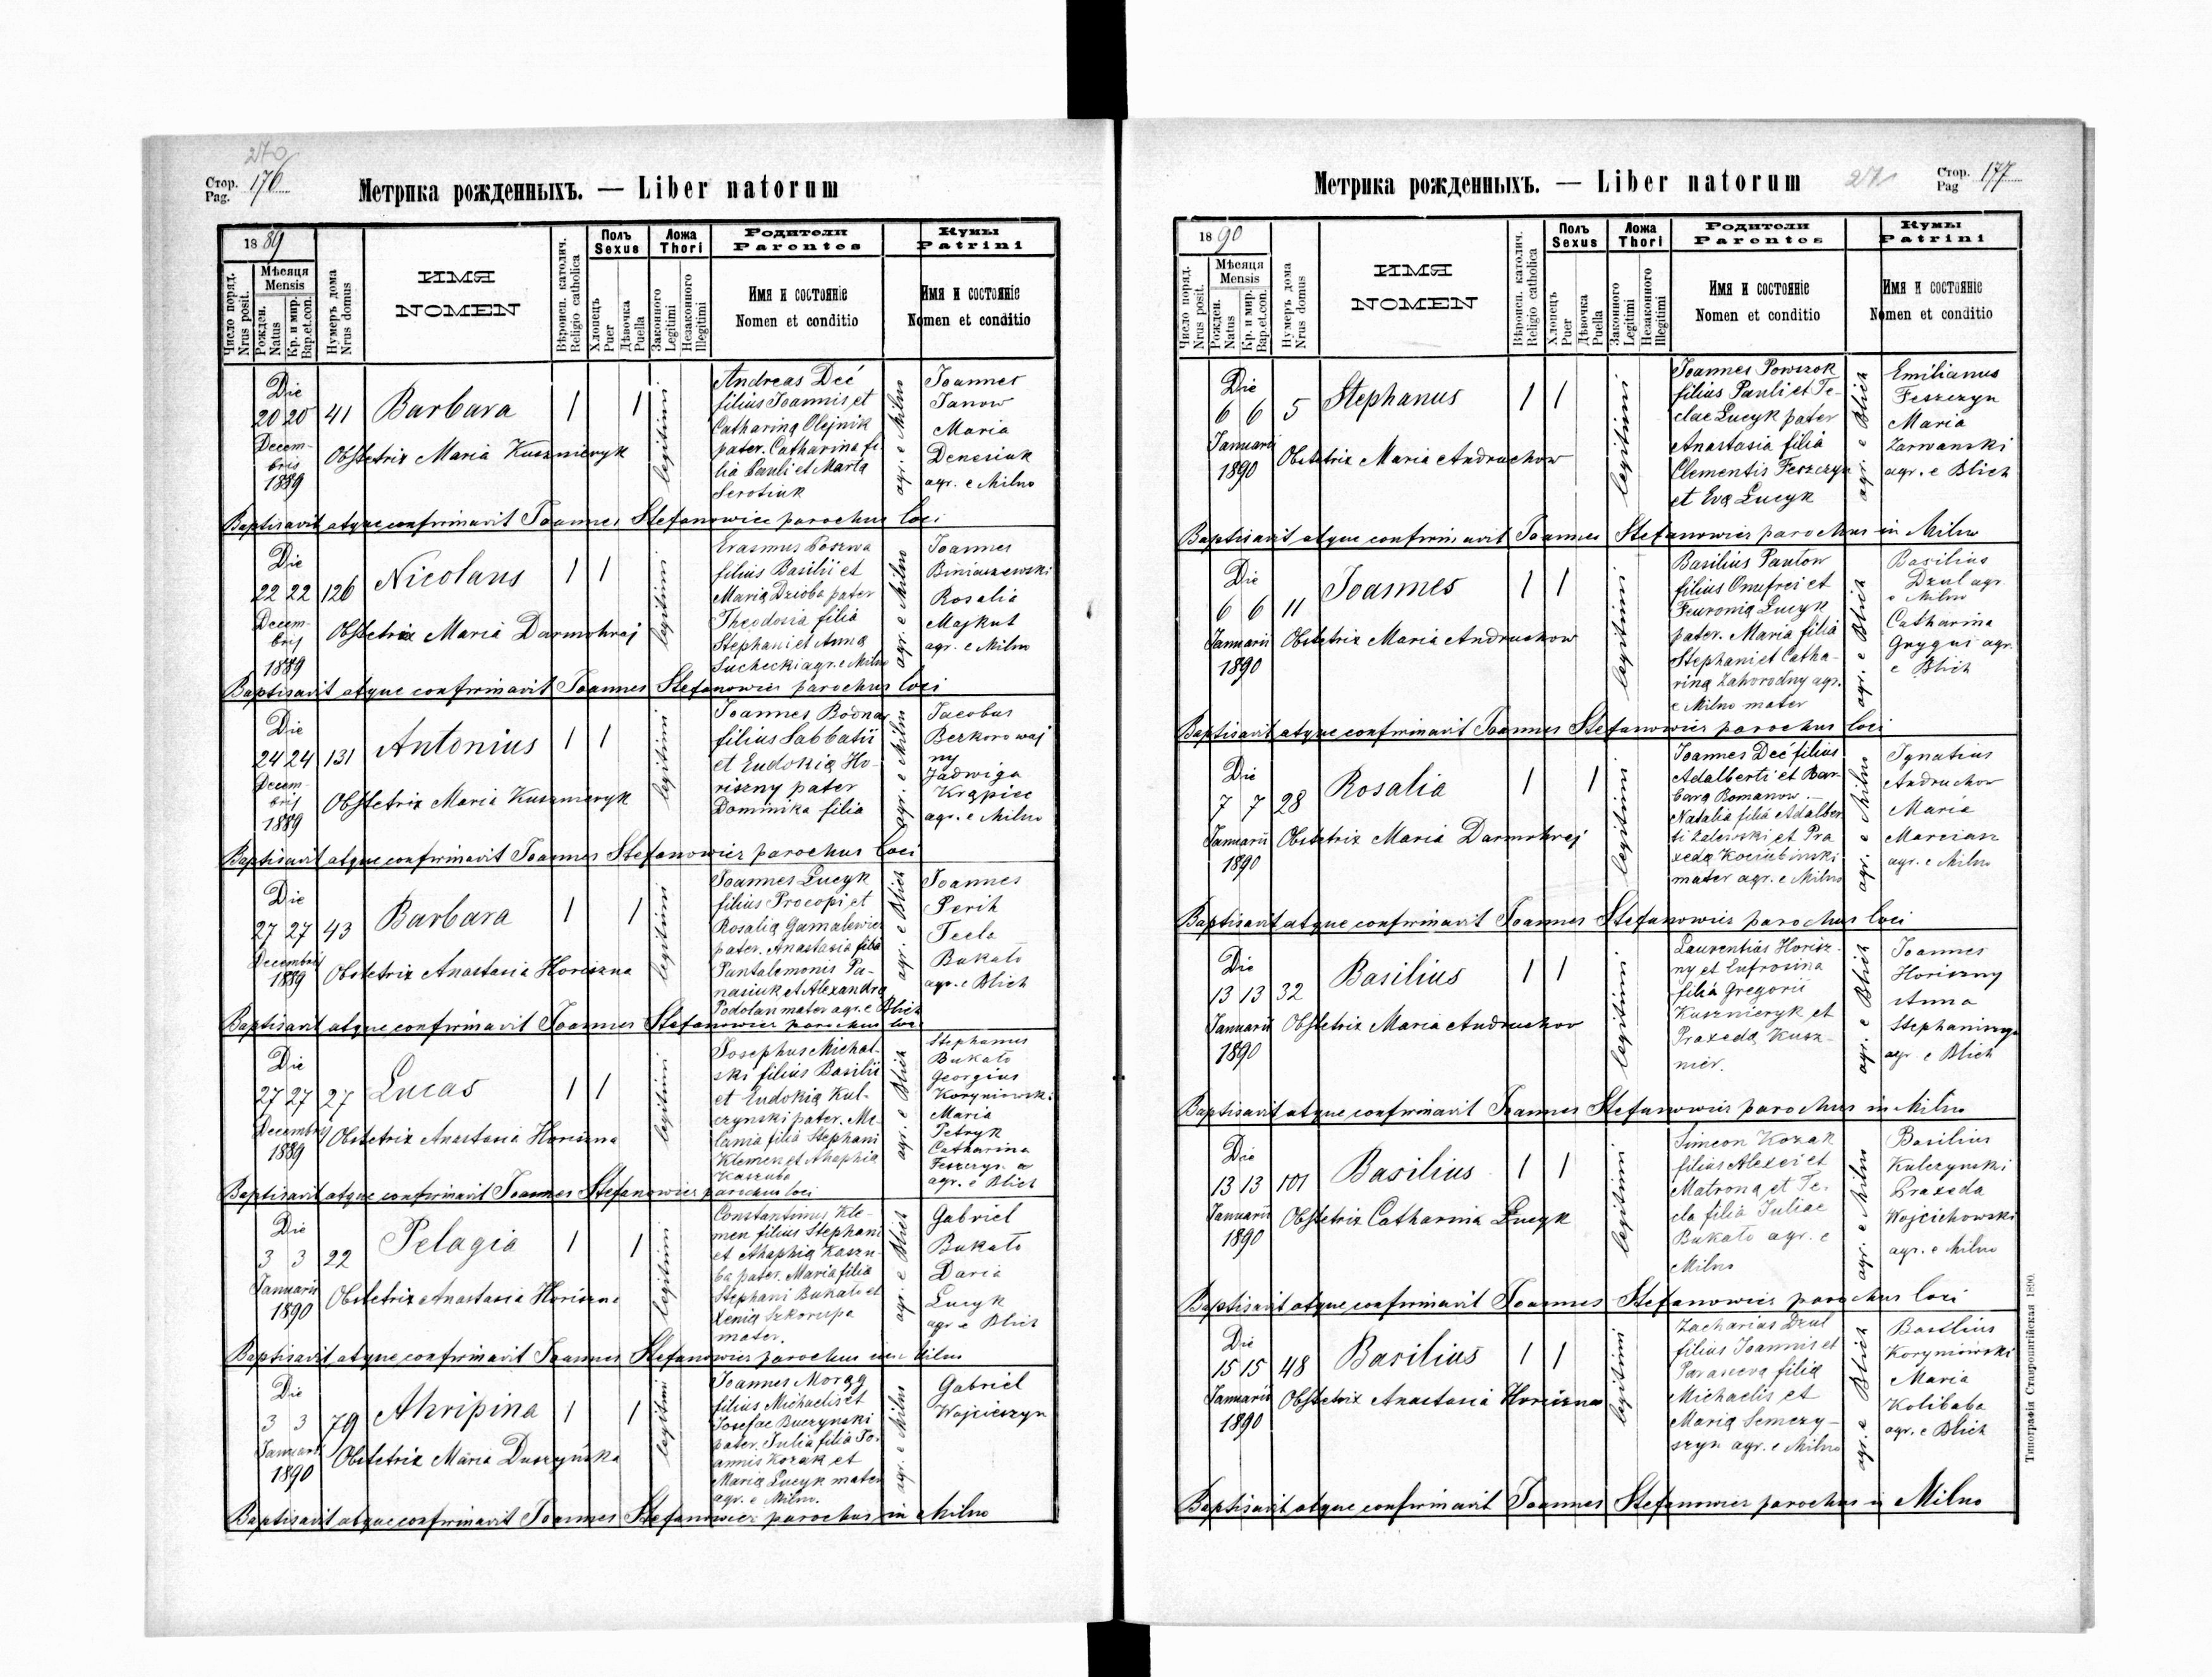 270
Стор.
Pag. 176
Метрика рожденныхъ. — Liber natorum
1889
Число поряд.
Nrus posit.
Мѣсяця
Mensis
Рожден.
Natus
Кр. и мир.
Bap.et.con.
Нумеръ дома
Nrus domus
ИМЯ
NOMEN
Вѣроисп. католич.
Religio catholica
Полъ
Sexus
Хлопецъ
Puer
Дѣвочка
Puella
Ложа
Thori
Законного
Legitimi
Незаконного
Illegitimi
Родители
Parentes
Имя и состояніе
Nomen et conditio
Кумы
Patrini
Имя и состояніе
Nomen et conditio
Die
20 20 41 Barbara 1 1
Decem-
bris
1889
Obstetrix Maria Kusznieryk
legitimi
Andreas Deć
filius Joannis et
Catharina Olejnik
pater. Catharina fi-
lia Pauli et Maria
Serotiuk
agr. e Milno
Joannes
Janow
Maria
Denesiuk
agr. e Milno
Baptisavit atque confirmavit Joannes Stefanowicz parochus loci
Die
22 22 126 Nicolaus 1 1
Decem-
bris
1889
Obstetrix Maria Darmohraj
legitimi
Erasmus Poszwa
filius Basilii et
Maria Dzioba pater
Theodosia filia
Stephani et Anna
Suchecki agr. e Milno
agr. e Milno
Joannes
Biniaszewski
Rosalia
Majkut
agr. e Milno
Baptisavit atque confirmavit Joannes Stefanowicz parochus loci
Die
24 24 131 Antonius 1 1
Decem-
bris
1889
Obstetrix Maria Kusznieryk
legitimi
Joannes Bodnar
filius Sabbatii
et Eudokia Ho-
riszny pater
Dominika filia
agr. e Milno
Jacobus
Bezkorowaj
ny
Jadwiga
Krąpiec
agr. e Milno
Baptisavit atque confirmavit Joannes Stefanowicz parochus loci
Die
27 27 43 Barbara 1 1
Decembris
1889
Obstetrix Anastasia Horiszna
legitimi
Joannes Lucyk
filius Procopi et
Rosalia Gamalewicz
pater. Anastasia filia
Pantalemonis Pa-
nasiuk et Alexandra
Podolan mater agr. e Blich
agr. e Blich
Joannes
Perih
Tecla
Bukato
agr. e Blich
Baptisavit atque confirmavit Joannes Stefanowicz parochus loci
Die
27 27 27 Lucas 1 1
Decembris
1889
Obstetrix Anastasia Horiszna
legitimi
Josephus Michal-
ski filius Basilii
et Eudokia Kul-
czynski pater. Me-
lania filia Stephani
Klemen et Ahaphia
Kaszuba
agr. e Blich
Stephanus
Bukato
Georgius
Koryniowski
Maria
Petryk
Catharina
Feszczyn a
agr. e Blich
Baptisavit atque confirmavit Joannes Stefanowicz parochus loci
Die
3 3 22 Pelagia 1 1
Januarii
1890
Obstetrix Anastasia Horiszna
legitimi
Constantinus Kle-
men filius Stephani
et Ahaphia Kaszu-
ba pater. Maria filia
Stephani Bukato et
Xenia Szkorupa
mater.
agr. e Blich
Gabriel
Bukato
Daria
Lucyk
agr e Blich
Baptisavit atque confirmavit Joannes Stefanowicz parochus in Milno
Die
3 3 79 Ahripina 1 1
Januarii
1890
Obstetrix Maria Duszyńska
legitimi
Joannes Morąg
filius Michaelis et
Josefae Buczynski
pater. Julia filia Jo-
annis Kozak et
Maria Lucyk mater
agr. e Milno.
agr. e Milno
Gabriel
Wojcieszyn
Baptisavit atque confirmavit Joannes Stefanowicz parochus in Milno
Метрика рожденныхъ. — Liber natorum
271
Стор.
Pag 177
1890
Число поряд.
Nrus posit.
Мѣсяця
Mensis
Рожден.
Natus
Кр. и мир.
Bap.et.con.
Нумеръ дома
Nrus domus
ИМЯ
NOMEN
Вѣроисп. католич.
Religio catholica
Полъ
Sexus
Хлопецъ
Puer
Дѣвочка
Puella
Ложа
Thori
Законного
Legitimi
Незаконного
Illegitimi
Родители
Parentes
Имя и состояніе
Nomen et conditio
Кумы
Patrini
Имя и состояніе
Nomen et conditio
Die
6 6 5 Stephanus 1 1
Januarii
1890
Obstetrix Maria Andruchow
legitimi
Joannes Powszok
filius Pauli et Te-
clae Lucyk pater
Anastasia filia
Clementis Feszczyn
et Eva Lucyk
agr. e Blich
Emilianus
Feszczyn
Maria
Zarwanski
agr. e Blich
Baptisavit atque confirmavit Joannes Stefanowicz parochus in Milno
Die
6 6 11 Joannes 1 1
Januarii
1890
Obstetrix Maria Andruchow
legitimi
Basilius Panton
filius Onufrei et
Feuronia Lucyk
pater. Maria filia
Stephani et Catha-
rina Zahorodny agr.
e Milno mater
agr. e Blich
Basilius
Dzul agr.
e Milno
Catharina
Grygus agr.
e Blich
Baptisavit atque confirmavit Joannes Stefanowicz parochus loci
Die
7 7 28 Rosalia 1 1
Januarii
1890
Obstetrix Maria Darmohraj
legitimi
Joannes Deć filius
Adalberti et Bar-
bara Romanow. —
Natalia filia Adalber
ti Zalewski et Pra
xeda Kociubinski
mater agr. e Milno
agr. e Milno
Ignatius
Andruchow
Maria
Marcian
agr. e Milno
Baptisavit atque confirmavit Joannes Stefanowicz parochus loci
Die
13 13 32 Basilius 1 1
Januarii
1890
Obstetrix Maria Andruchow
legitimi
Laurentius Horisz-
ny et Eufrosina
filia Gregorii
Kusznieryk et
Praxeda Kusz-
nier.
agr. e Blich
Joannes
Horiszny
Anna
Stephaniszyn
agr. e Blich
Baptisavit atque confirmavit Joannes Stefanowicz parochus in Milno
Die
13 13 101 Basilius 1 1
Januarii
1890
Obstetrix Catharina Lucyk
legitimi
Simeon Kozak
filius Alexei et
Matrona et Te-
cla filia Juliae
Bukato agr. e
Milno
agr. e Milno
Basilius
Kulczynski
Praxeda
Wojcichowski
agr. e Milno
Baptisavit atque confirmavit Joannes Stefanowicz parochus loci
Die
15 15 48 Basilius 1 1
Januarii
1890
Obstetrix Anastasia Horiszna
legitimi
Zacharias Dzul
filius Joannis et
Parasceva filia
Michaelis et
Maria Semczy-
szyn agr. e Milno
agr. e Blich
Basilius
Koryniowski
Maria
Kolibaba
agr. e Blich
Baptisavit atque confirmavit Joannes Stefanowicz parochus in Milno
Типографія Ставропигійская 1890.